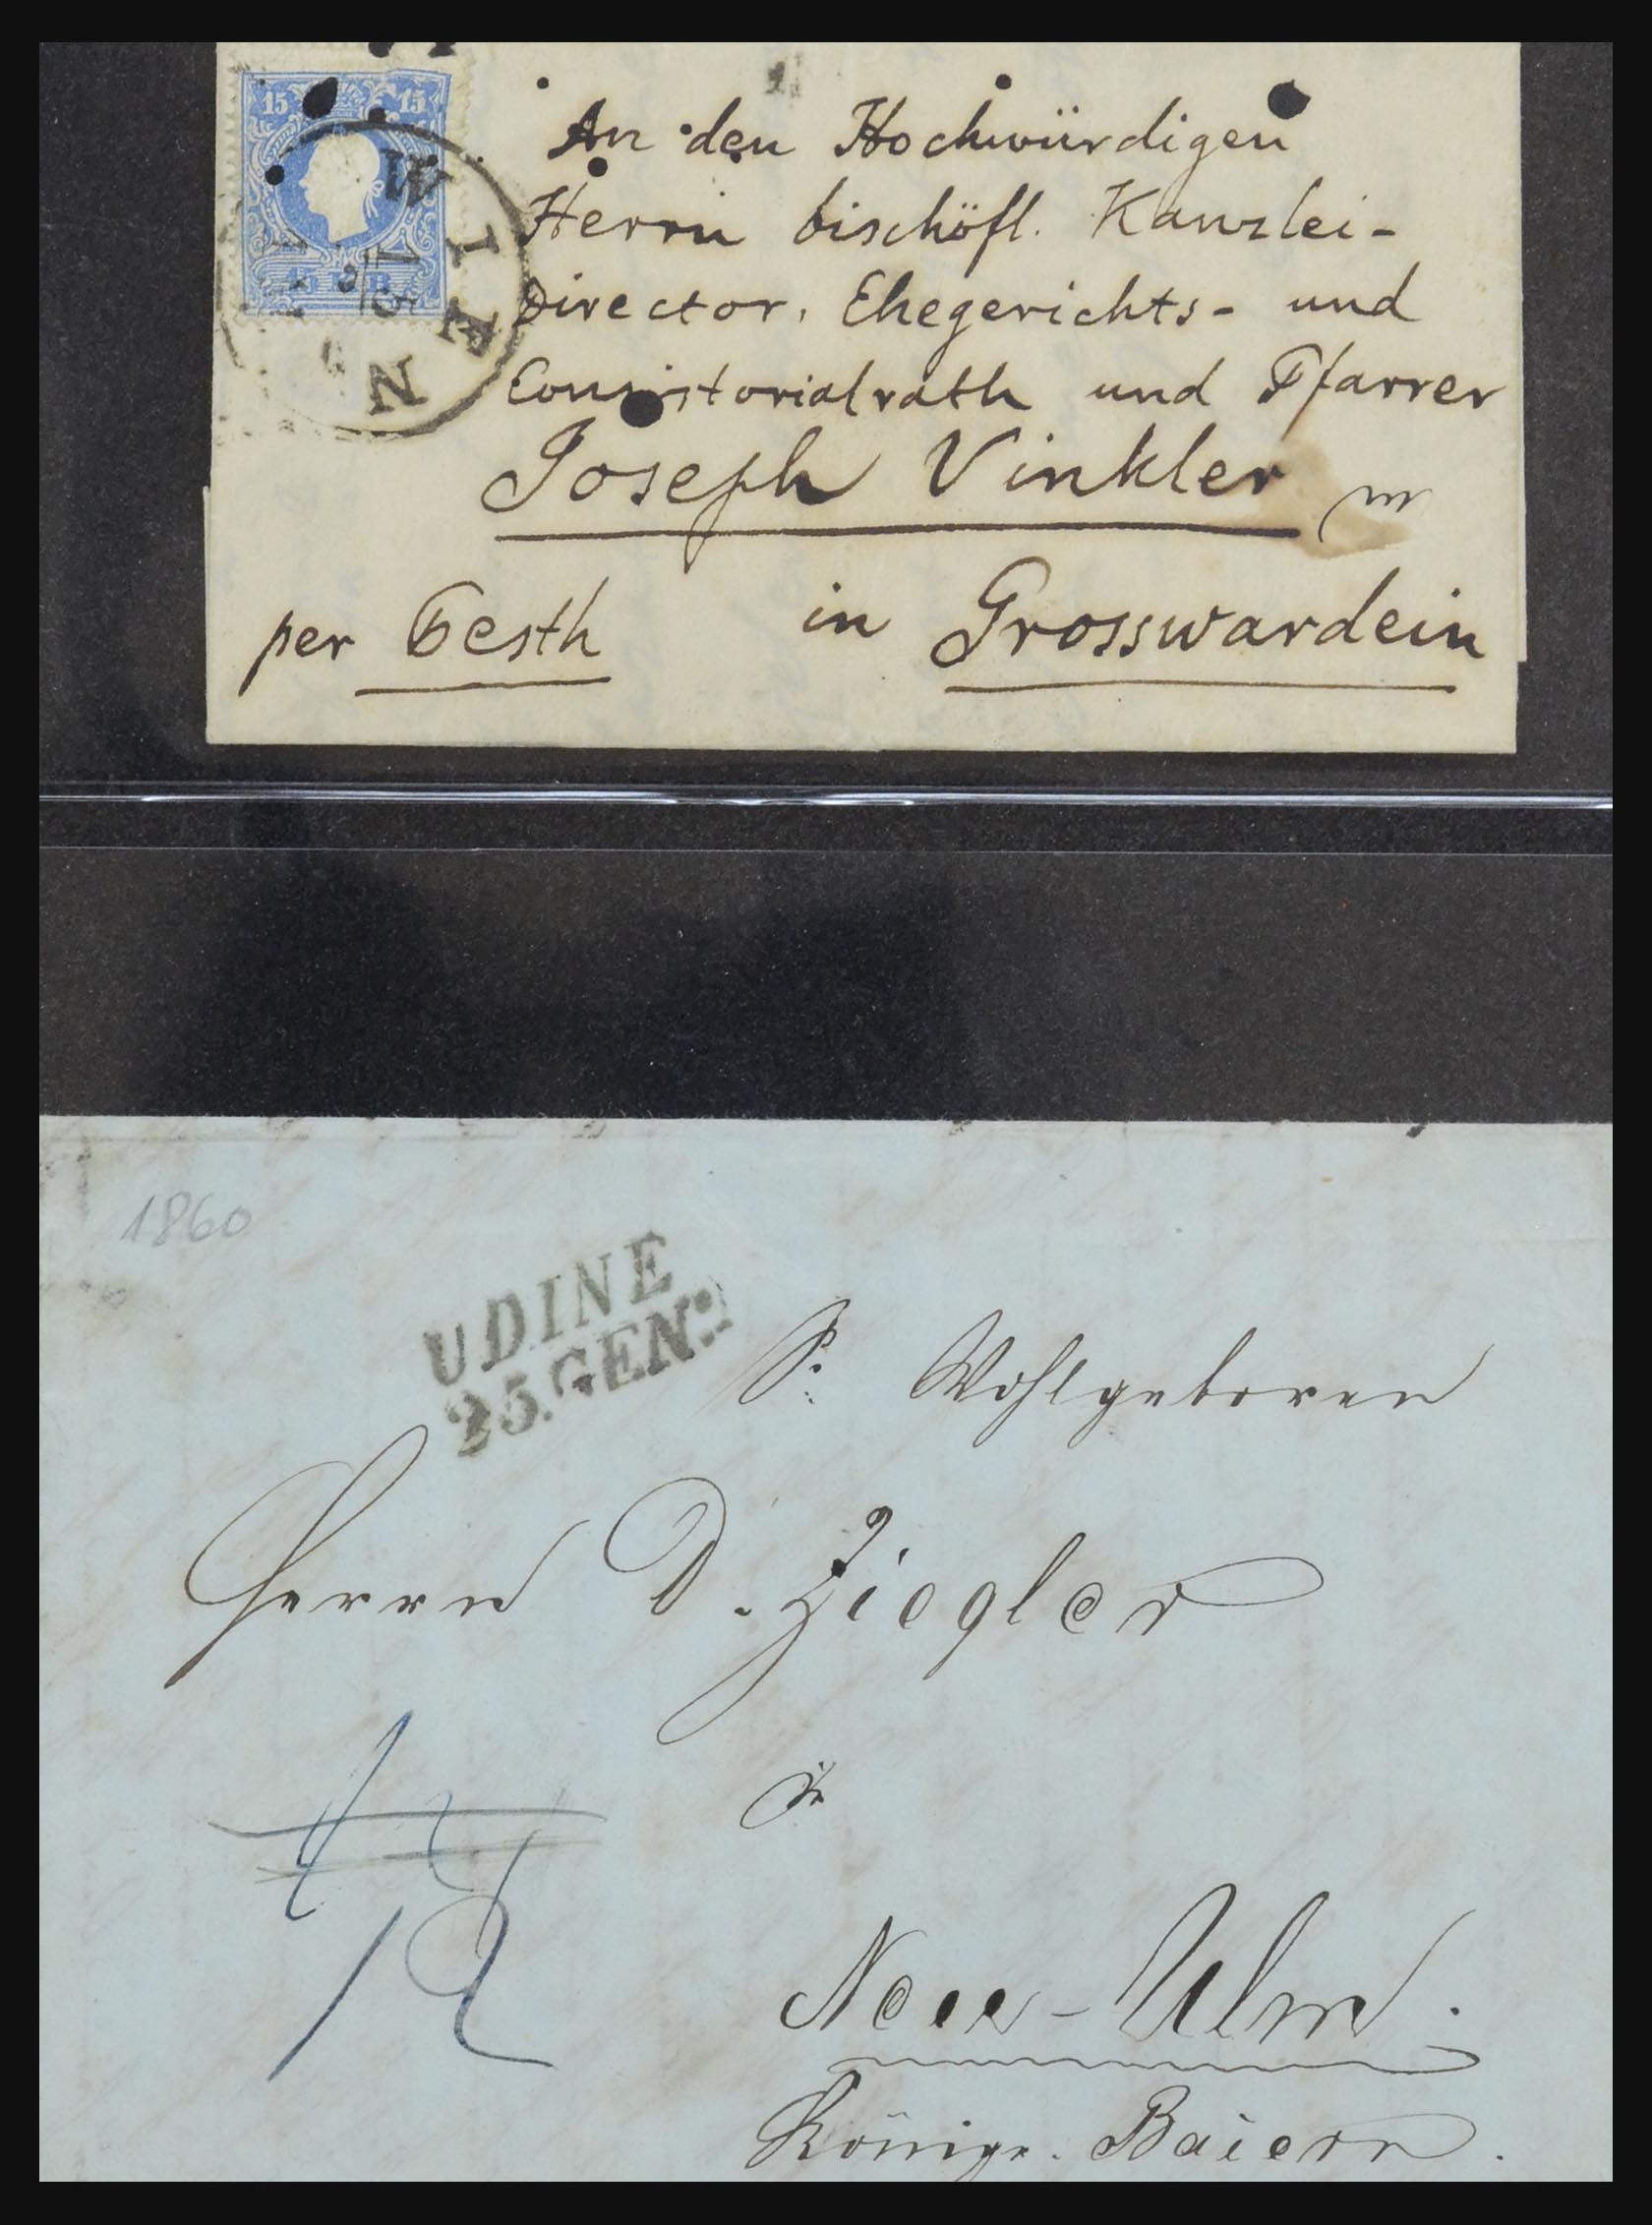 15 15
15 KR
WIEN
An den Hochwürdigen
Herrn bischöfl. Kanzlei-
Director, Ehegerichts- und
Consistorialrath und Pfarrer
Joseph Vinkler
per Pesth in Grosswardein
1860
UDINE
25.GEN:
Sr Wohlgeboren
Herrn D. Ziegler
in
12
Neu-Ulm.
Königr. Baiern.